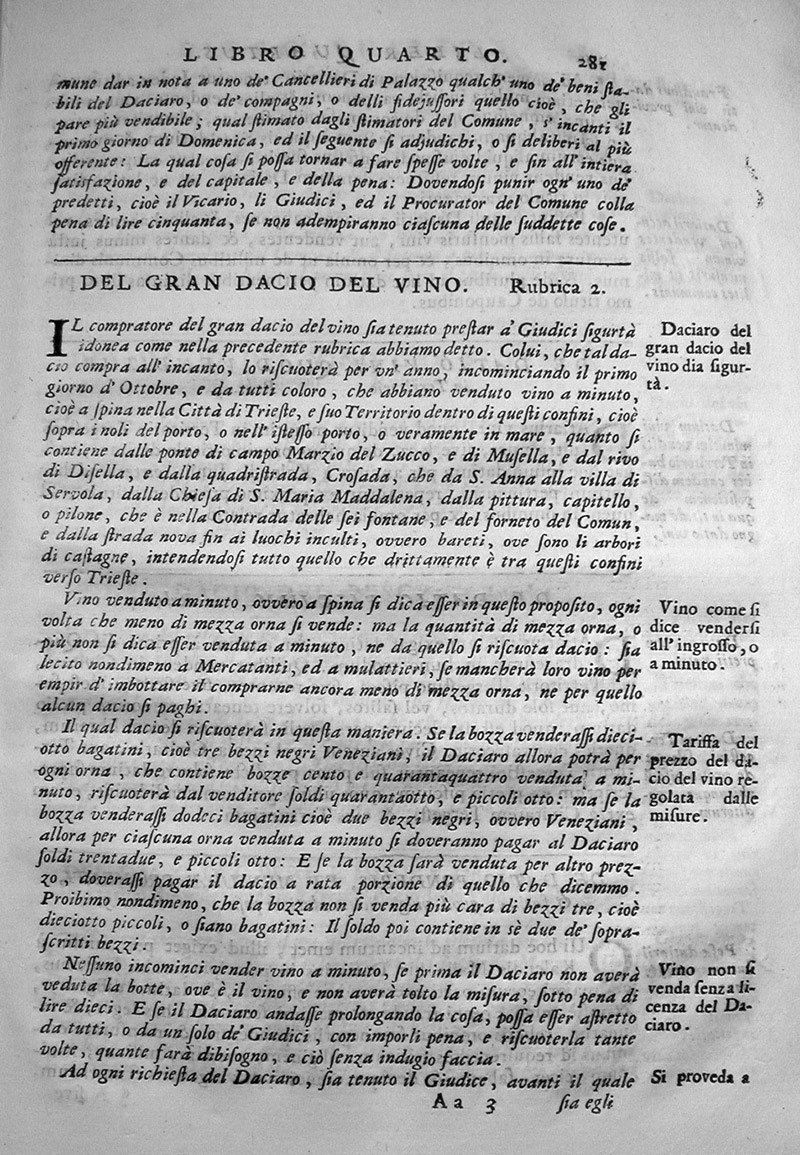 LIBRO QUARTO. 281
mune dar in nota a uno de' Cancellieri di Palazzo qualch' uno de' beni sta-
bili del Daciaro, o de' compagni, o delli fidejussori quello cioè, che gli
pare più vendibile; qual stimato dagli stimatori del Comune, s' incanti il
primo giorno di Domenica, ed il seguente si adjudichi, o si deliberi al più
offerente: La qual cosa si possa tornar a fare spesse volte, e sin all' intiera
satisfazione, e del capitale, e della pena: Dovendosi punir ogn' uno de'
predetti, cioè il Vicario, li Giudici, ed il Procurator del Comune colla
pena di lire cinquanta, se non adempiranno ciascuna delle suddette cose.
DEL GRAN DACIO DEL VINO. Rubrica 2.
IL compratore del gran dacio del vino sia tenuto prestar a' Giudici sigurtà
idonea come nella precedente rubrica abbiamo detto. Colui, che tal da-
cio compra all' incanto, lo riscuoterà per un' anno, incominciando il primo
giorno d' Ottobre, e da tutti coloro, che abbiano venduto vino a minuto,
cioè a spina nella Città di Trieste, e suo Territorio dentro di questi confini, cioè
sopra i noli del porto, o nell' istesso porto, o veramente in mare, quanto si
contiene dalle ponte di campo Marzio del Zucco, e di Musella, e dal rivo
di Disella, e dalla quadristrada, Crosada, che da S. Anna alla villa di
Servola, dalla Chiesa di S. Maria Maddalena, dalla pittura, capitello,
o pilone, che è nella Contrada delle sei fontane, e del forneto del Comun,
e dalla strada nova fin ai luochi inculti, ovvero bareti, ove sono li arbori
di castagne, intendendosi tutto quello che drittamente è tra questi confini
verso Trieste.
Daciaro del
gran dacio del
vino dia sigur-
tà.
Vino venduto a minuto, ovvero a spina si dica esser in questo proposito, ogni
volta che meno di mezza orna si vende: ma la quantità di mezza orna, o
più non si dica esser venduta a minuto, ne da quello si riscuota dacio: sia
lecito nondimeno a Mercatanti, ed a mulattieri, se mancherà loro vino per
empir d' imbottare il comprarne ancora meno di mezza orna, ne per quello
alcun dacio si paghi.
Vino come si
dice vendersi
all' ingrosso, o
a minuto.
Il qual dacio si riscuoterà in questa maniera. Se la bozza venderassi dieci-
otto bagatini, cioè tre bezzi negri Veneziani, il Daciaro allora potrà per
ogni orna, che contiene bozze cento e quarantaquattro venduta a mi-
nuto, riscuoterà dal venditore soldi quarantaotto, e piccoli otto: ma se la
bozza venderassi dodeci bagatini cioè due bezzi negri, ovvero Veneziani,
allora per ciascuna orna venduta a minuto si doveranno pagar al Daciaro
soldi trentadue, e piccoli otto: E se la bozza sarà venduta per altro prez-
zo, doverassi pagar il dacio a rata porzione di quello che dicemmo.
Proibimo nondimeno, che la bozza non si venda più cara di bezzi tre, cioè
dieciotto piccoli, o siano bagatini: Il soldo poi contiene in sè due de' sopra-
scritti bezzi.
Tariffa del
prezzo del da-
cio del vino re-
golata dalle
misure.
Nessuno incominci vender vino a minuto, se prima il Daciaro non averà
veduta la botte, ove è il vino, e non averà tolto la misura, sotto pena di
lire dieci. E se il Daciaro andasse prolongando la cosa, possa esser astretto
da tutti, o da un solo de' Giudici, con imporli pena, e riscuoterla tante
volte, quante farà dibisogno, e ciò senza indugio faccia.
Vino non si
venda senza li-
cenza del Da-
ciaro.
Ad ogni richiesta del Daciaro, sia tenuto il Giudice, avanti il quale
Si proveda a
Aa 3 sia egli